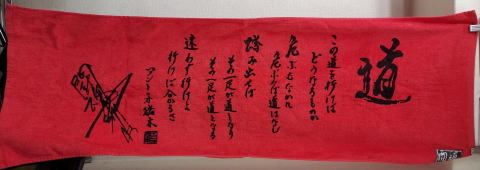 道
この道を行けば
どうなるものか
危ぶむなかれ
危ぶめば道はなし
踏み出せば
その一足が道となり
その一足が道となる
迷わず行けよ
行けば分かるさ
アントニオ猪木
闘魂